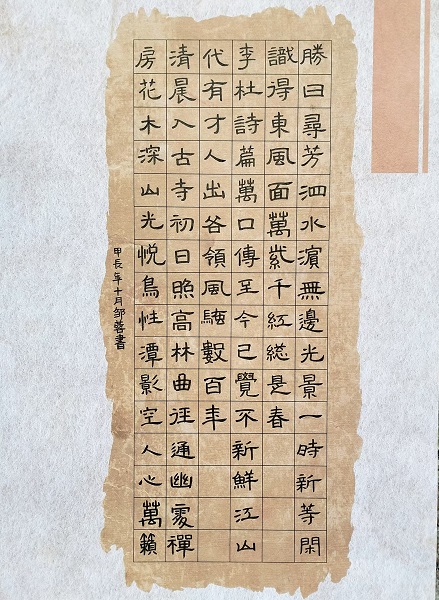 勝日尋芳泗水濱無邊光景一時新等閑
識得東風面萬紫千紅総是春
李杜詩篇萬口傳至今已覺不新鮮江山
代有才人出各領風騷數百年
清晨入古寺初日照高林曲徑通幽處禪
房花木深山光悅鳥性潭影空人心萬籟
甲辰年十月邹蓉書